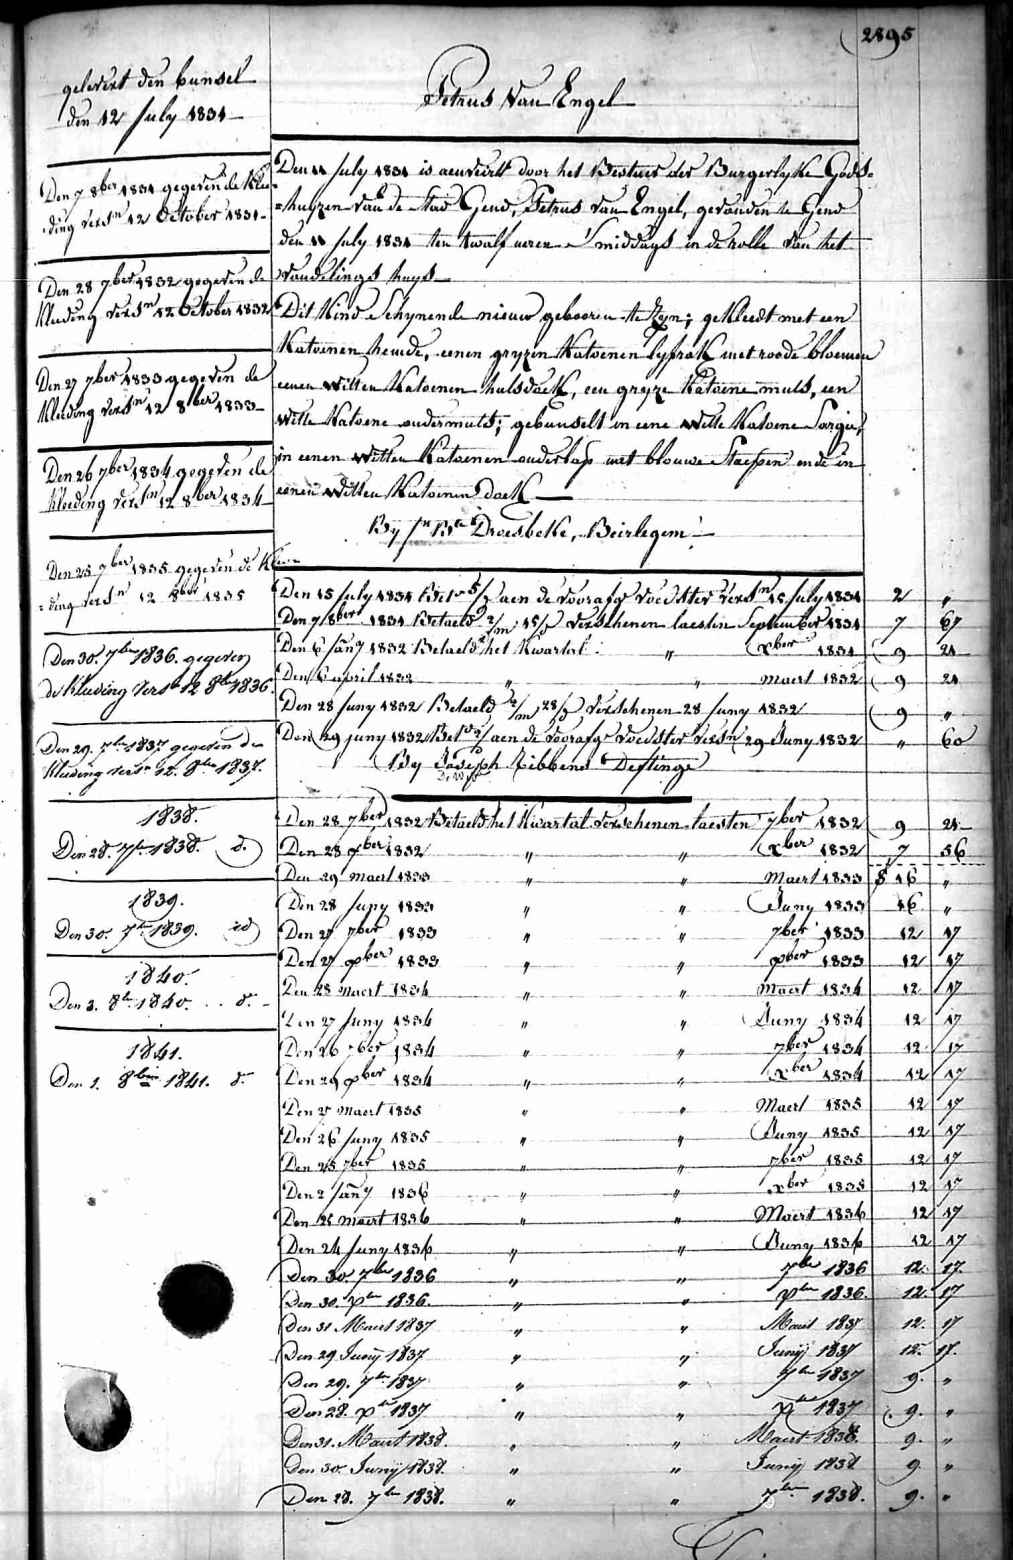 2895
gelevert den bunsel
den 12 July 1831
Petrus Van Engel
Den 7 8ber 1831 gegeven de Klee
ding versn 12 October 1831
Den 28 7ber 1832 gegeven de
kleeding versn 12 October 1832
Den 27 7ber 1833 gegeven de
kleeding versn 12 8ber 1833
Den 26 7ber 1834 gegeven de
kleeding versn 12 8ber 1834
Den 25 7ber 1835 gegeven de Klee
ding versn 12 8ber 1835
Den 30. 7ber 1836. gegeven
de Kleeding versn 12 8ber 1836.
Den 29. 7ber 1837 gegeven de
Kleeding versn 12. 8ber 1837.
1838.
Den 28. 7br 1838. d.
1839.
Den 30. 7br 1839. id
1840.
Den 3. 8br 1840. . . d.
1841.
Den 1. 8ber 1841. d.
Den 11 July 1831 is aenveird door het Bestuer der Burgerlyke Gods-
=huyzen van de stad Gend, Petrus Van Engel, gevonden te Gend
den 11 July 1831 ten twalf ueren s'middags in de rolle van het
vondelings huys
Dit Kind schynende nieuw gebooren te zyn; gekleedt met een
Katoenen hemde, eenen gryzen Katoenen lyfrak met roode bloemen
eenen witten Katoenen halsdoek, een gryze Katoene muts, een
witte Katoene ondermuts; gebunselt in eene witte Katoene Sargie,
in eenen witten Katoenen onderlap met blouwe Staepen ende in
eenen witten Katoenen doek
By Droesbeke, Beirlegem
Den 15 July 1831 Bet. aen de voorafge voedster versn 15 July 1831 2 "
Den 7 8ber 1831 Betaeld 2/m 15/d verschenen laesten September 1831 7 67
Den 6 Jany 1832 Betaeld het Kwartal " xber 1831 9 21
Den 6 april 1832 " " maert 1832 9 21
Den 28 Juny 1832 Betaeld 2/m 28/d verschenen 28 Juny 1832 9 "
Den 29 Juny 1832 Bet. aen de voorafge voedster versn 29 Juny 1832 " 60
By Joseph Tibbens Deftinge
Den 28 7ber 1832 Betaeld het Kwartal verschenen laesten 7ber 1832 9 21
Den 28 xber 1832 " " xber 1832 7 56
Den 29 maert 1833 " " Maert 1833 16 "
Den 28 Juny 1833 " " Juny 1833 16 "
Den 27 7ber 1833 " " 7ber 1833 12 17
Den 27 xber 1833 " " xber 1833 12 17
Den 28 maert 1834 " " maert 1834 12 17
Den 27 Juny 1834 " " Juny 1834 12 17
Den 26 7ber 1834 " " 7ber 1834 12 17
Den 29 xber 1834 " " xber 1834 12 17
Den 27 maert 1835 " " Maert 1835 12 17
Den 26 Juny 1835 " " Juny 1835 12 17
Den 25 7ber 1835 " " 7ber 1835 12 17
Den 2 Jany 1836 " " xber 1835 12 17
Den 25 maert 1836 " " Maert 1836 12 17
Den 24 Juny 1836 " " Juny 1836 12 17
Den 30 7ber 1836 " " 7ber 1836 12. 17.
Den 30. xber 1836. " " xber 1836. 12. 17
Den 31 Maert 1837 " " Maert 1837 12. 17
Den 29 Junij 1837. " " Junij 1837 12. 17.
Den 29. 7br 1837 " " 7br 1837 9. "
Den 28. xbr 1837 " " xbr 1837 9. "
Den 31. Maert 1838. " " Maert 1838. 9. "
Den 30. Junij 1838. " " Junij 1838 9. "
Den 28. 7br 1838. " " 7br 1838. 9. "